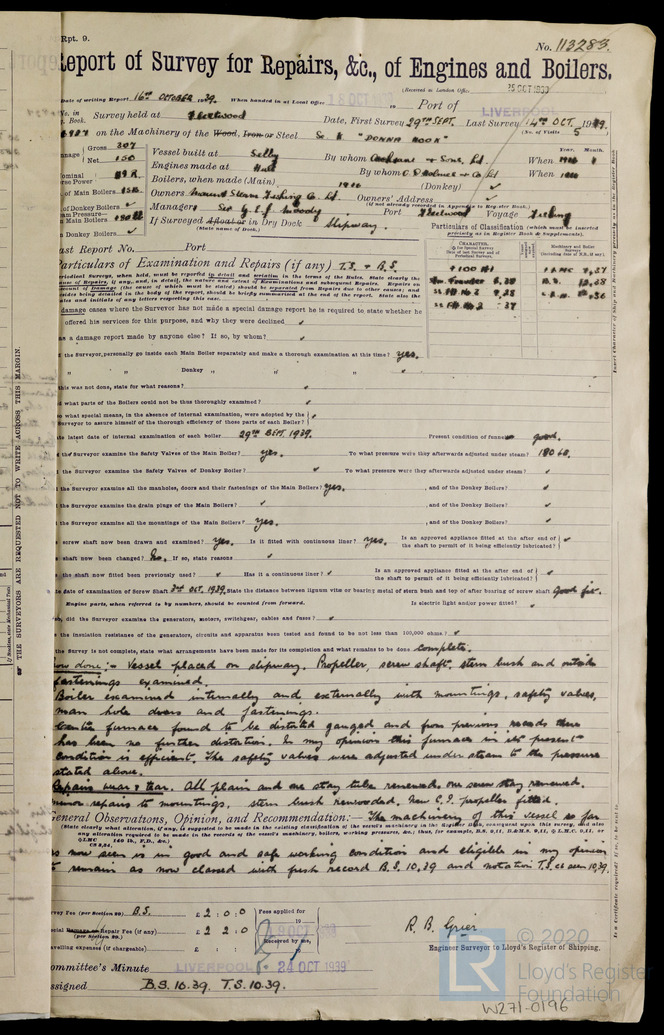 Rpt. 9.
No. 113283.
Report of Survey for Repairs, &c., of Engines and Boilers.
(Received at London Office 25 OCT 1939
Date of writing Report 16th October 1939. When handed in at Local Office 18 OCT Port of LIVERPOOL
No. in Reg. Book. Survey held at Fleetwood Date, First Survey 29th SEPT. Last Survey 14th OCT. 1939.
(No. of Visits 5
on the Machinery of the Wood, Iron or Steel S. K "DONNA NOOK"
Gross 307
Net 150
Vessel built at Selby By whom Cochrane & Sons. Ld. When
Year. Month.
Engines made at Hull By whom C. D. Holmes & Co Ld When
Boilers, when made (Main) 1916 (Donkey) ✓
of Main Boilers
Owners Mount Steam Fishing Co. Ld. Owners' Address ✓
(if not already recorded in Appendix to Register Book.)
of Donkey Boilers ✓
Managers Sir G. E. J. Moody Port Fleetwood Voyage Fishing
If Surveyed Afloat or in Dry Dock Slipway.
(State name of Dock.)
Donkey Boilers ✓
Particulars of Classification (which must be inserted precisely as in Register Book & Supplements).
Last Report No. Port
Particulars of Examination and Repairs (if any) T.S. & B.S.
damage cases where the Surveyor has not made a special damage report he is required to state whether he
offered his services for this purpose, and why they were declined ✓
was a damage report made by anyone else? If so, by whom? ✓
Did the Surveyor personally go inside each Main Boiler separately and make a thorough examination at this time? yes.
" " Donkey " " " ✓
If this was not done, state for what reasons? ✓
what parts of the Boilers could not be thus thoroughly examined? ✓
what special means, in the absence of internal examination, were adopted by the
Surveyor to assure himself of the thorough efficiency of those parts of each Boiler? ✓
State latest date of internal examination of each boiler 29th SEPT. 1939. Present condition of funnel good.
Did the Surveyor examine the Safety Valves of the Main Boiler? yes. To what pressure were they afterwards adjusted under steam? 180 lb.
Did the Surveyor examine the Safety Valves of Donkey Boiler? ✓ To what pressure were they afterwards adjusted under steam? ✓
Did the Surveyor examine all the manholes, doors and their fastenings of the Main Boilers? yes. , and of the Donkey Boilers? ✓
Did the Surveyor examine the drain plugs of the Main Boilers? ✓ , and of the Donkey Boilers? ✓
Did the Surveyor examine all the mountings of the Main Boilers? yes. , and of the Donkey Boilers? ✓
screw shaft now been drawn and examined? yes. Is it fitted with continuous liner? yes. Is an approved appliance fitted at the after end of the shaft to permit of it being efficiently lubricated? ✓
shaft now been changed? No. If so, state reasons ✓
the shaft now fitted been previously used? ✓ Has it a continuous liner? ✓ Is an approved appliance fitted at the after end of the shaft to permit of it being efficiently lubricated? ✓
date of examination of Screw Shaft 3rd OCT. 1939. State the distance between lignum vitæ or bearing metal of stern bush and top of after bearing of screw shaft Good fit.
Engine parts, when referred to by numbers, should be counted from forward. Is electric light and/or power fitted? ✓
did the Surveyor examine the generators, motors, switchgear, cables and fuses? ✓
the insulation resistance of the generators, circuits and apparatus been tested and found to be not less than 100,000 ohms? ✓
the Survey is not complete, state what arrangements have been made for its completion and what remains to be done complete.
Now done:- Vessel placed on slipway. Propeller, screw shaft, stern bush and outside
fastenings examined.
Boiler examined internally and externally with mountings, safety valves,
man hole doors and fastenings.
Centre furnace found to be distorted gauged and from previous records there
has been no further distortion. In my opinion this furnace in its present
condition is efficient. The safety valves were adjusted under steam to the pressure
stated above.
Repairs wear & tear. All plain and one stay tube renewed. one screw stay renewed.
minor repairs to mountings, stern bush rewooded. New C.I. propeller fitted.
General Observations, Opinion, and Recommendation:- The machinery of this vessel so far
(State clearly what alteration, if any, is suggested to be made in the existing classification of the vessel's machinery in the Register Book, consequent upon this survey, and also
any alteration required to be made in the records of the vessel's machinery, boilers, working pressures, &c.; thus, for example, B.S. 9,11, D&M.S. 9,11,
as now seen is in good and safe working condition and eligible in my opinion
to remain as now classed with fresh record B.S. 10.39 and notation T.S. as seen 10.39.
Survey Fee (per Section 29) B.S. £ 2 : 0 : 0 Fees applied for
Special Damage or Repair Fee (if any) £ 2 2 0
(per Section 29.)
Travelling expenses (if chargeable) £ : : Received by me,
R. B. Grier
Engineer Surveyor to Lloyd's Register of Shipping.
Committee's Minute LIVERPOOL 24 OCT 1939
Assigned B.S. 10.39. T.S. 10.39.
THE SURVEYORS ARE REQUESTED NOT TO WRITE ACROSS THIS MARGIN.
© 2020
LR
Lloyd's Register
Foundation
W271-0196